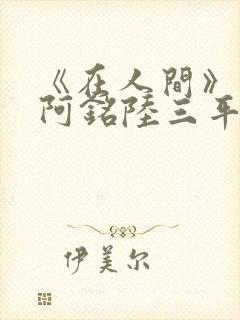 《在人間》
阿銘陸三平
伊美尔